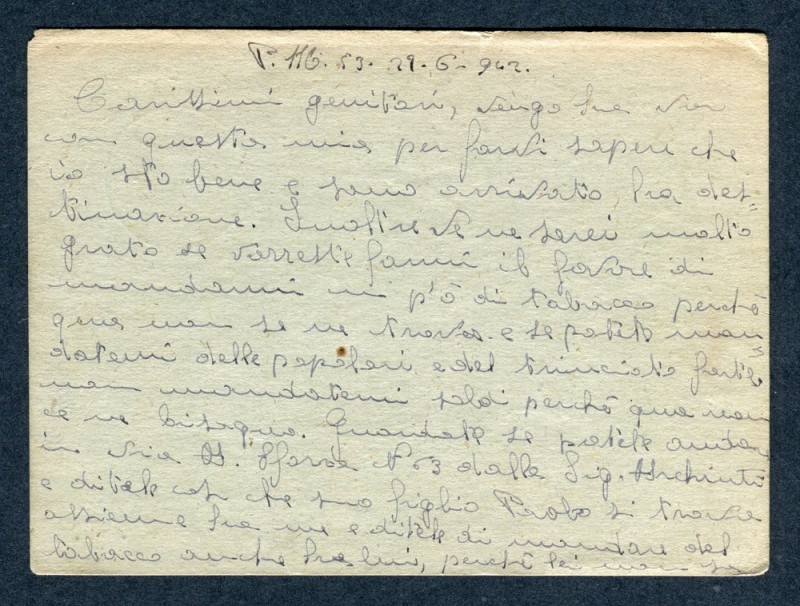 P. M. 53. 29-6-942.
Carissimi genitori, vengo ha voi
con questa mia per farvi sapere che
io sto bene e sono arrivato ha des=
tinazione. Inoltre ve ne serei molto
grato se vorreste farmi il favore di
mandarmi un p'ò di tabacco perchè
qua non se ne trova e se potete man
datemi delle popolari e del trinciato forte
non mandatemi soldi perchè qua non
ce ne bisogno. Guardate se potete andare
in via Sforza N 53 dalla Sig.
e ditele così che suo figlio Paolo si trova
assieme ha me e ditele di mandare del
tabacco anche ha lui, perchè lei non sa